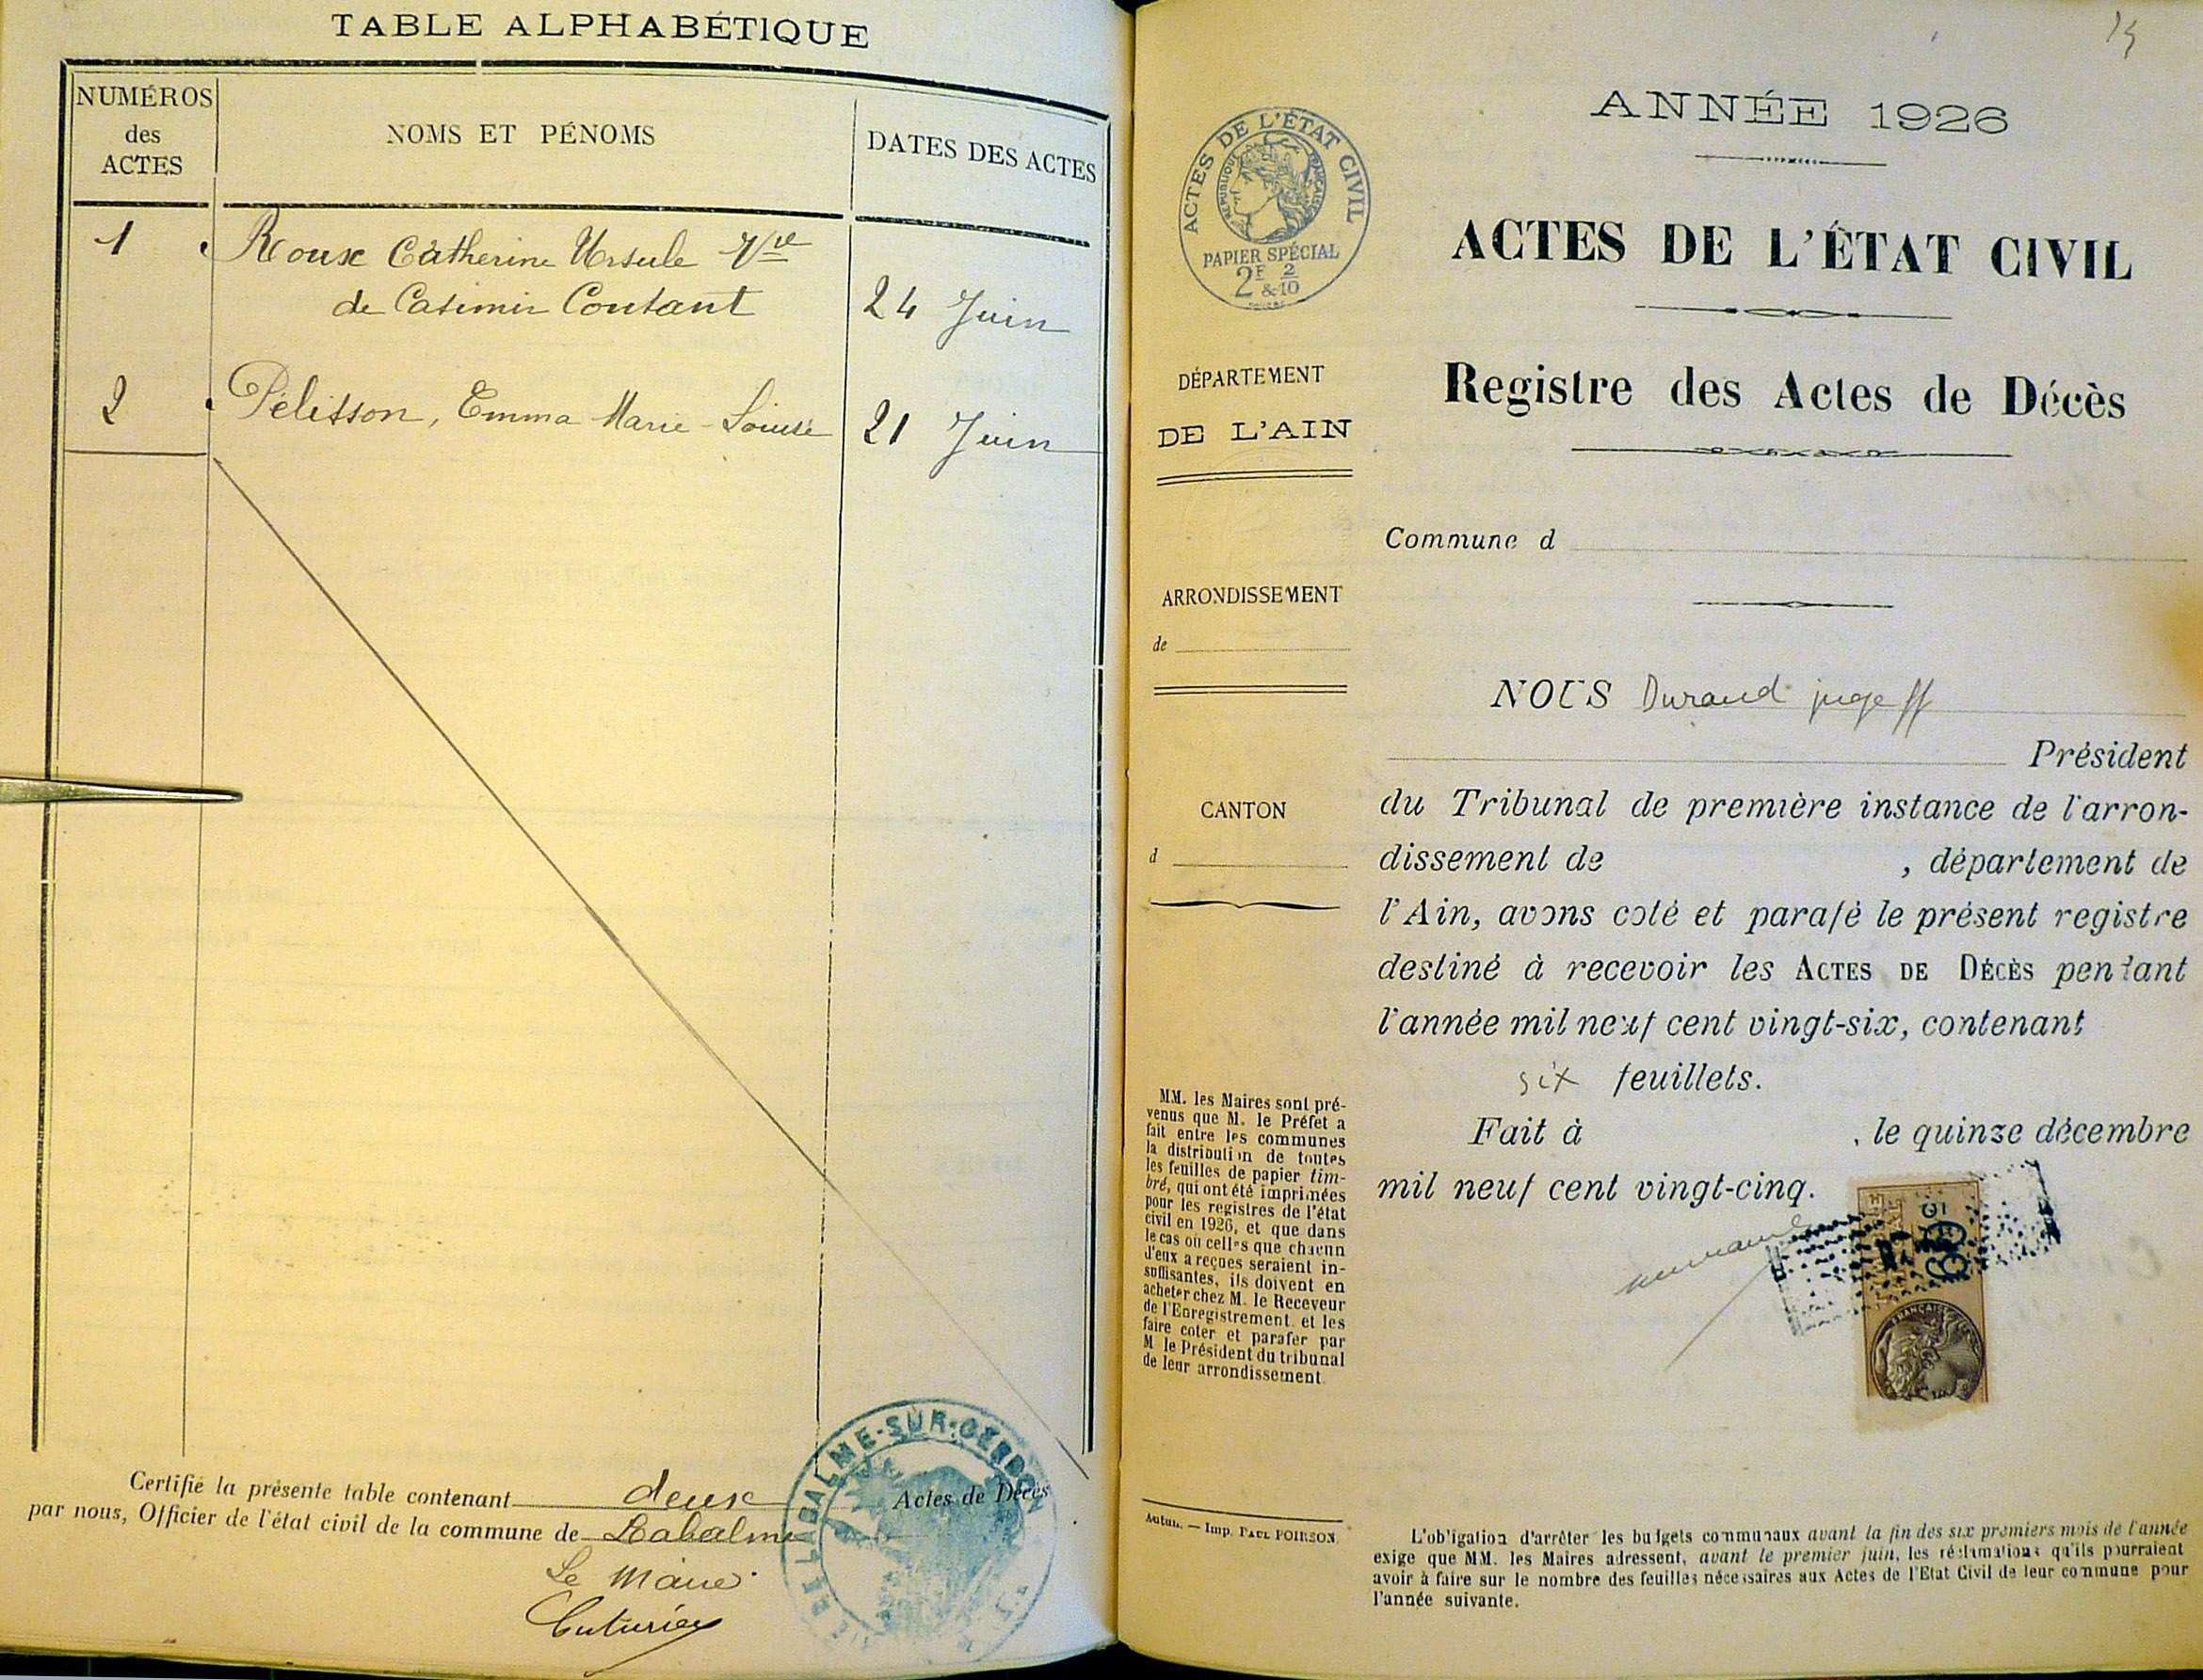 TABLE ALPHABÉTIQUE
NUMÉROS
des
ACTES
NOMS ET PÉNOMS
DATES DES ACTES
1 Roux Catherine Ursule Vve
de Casimir Coutant 24 Juin
2 Pélisson, Emma Marie-Louise 21 Juin
Certifié la présente table contenant deux Actes de Décès
par nous, Officier de l'état civil de la commune de Labalme
Le Maire
Cuturier
DE LABALME-SUR-CERDON
15
ANNÉE 1926
ACTES DE L'ÉTAT CIVIL
RÉPUBLIQUE FRANÇAISE
PAPIER SPÉCIAL
2F & 2/10
ACTES DE L'ÉTAT CIVIL
Registre des Actes de Décès
DÉPARTEMENT
DE L'AIN
Commune d
ARRONDISSEMENT
de
CANTON
d
NOUS Durand juge ff
Président
du Tribunal de première instance de l'arron-
dissement de , département de
l'Ain, avons coté et parafé le présent registre
destiné à recevoir les ACTES DE DÉCÈS pendant
l'année mil neuf cent vingt-six, contenant
six feuillets.
Fait à , le quinze décembre
mil neuf cent vingt-cinq.
MM. les Maires sont pré-
venus que M. le Préfet a
fait entre les communes
la distribution de toutes
les feuilles de papier tim-
bré, qui ont été imprimées
pour les registres de l'état
civil en 1926, et que dans
le cas où celles que chacun
d'eux a reçues seraient in-
suffisantes, ils doivent en
acheter chez M. le Receveur
de l'Enregistrement et les
faire coter et parafer par
M le Président du tribunal
de leur arrondissement
Autun. — Imp. PAUL POIRSON.
L'obligation d'arrêter les budgets communaux avant la fin des six premiers mois de l'année
exige que MM. les Maires adressent, avant le premier juin, les réclamations qu'ils pourraient
avoir à faire sur le nombre des feuilles nécessaires aux Actes de l'Etat Civil de leur commune pour
l'année suivante.